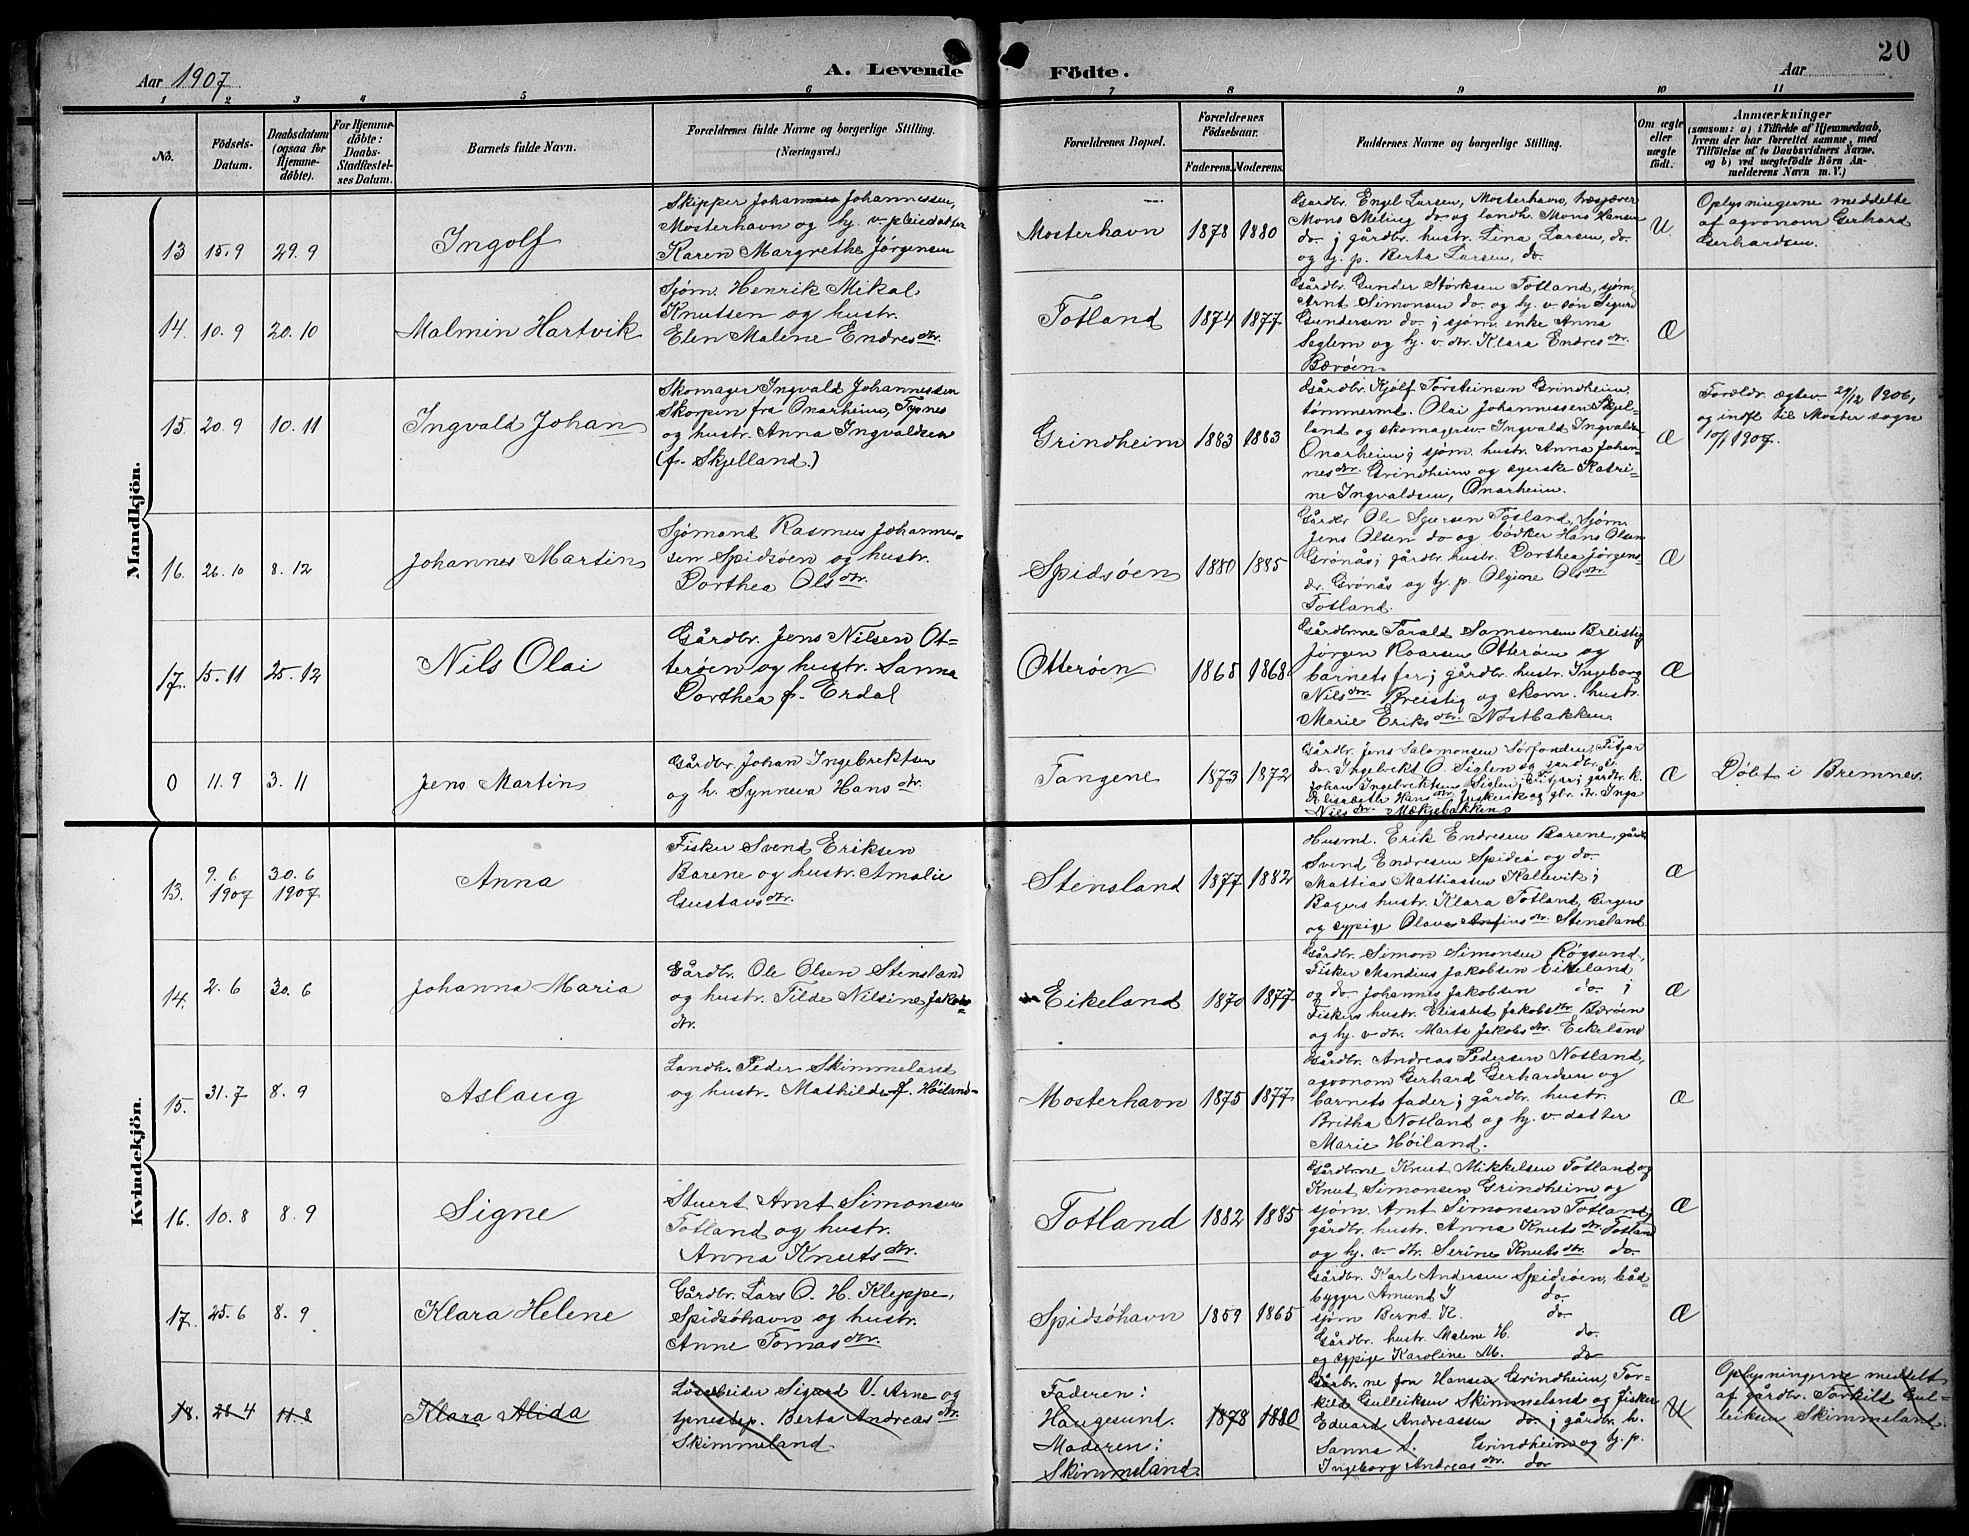 20
Aar 1907
A. Levende Födte.
Aar
1 2 3 4 5 6 7 8 9 10 11
No.
Födsels-
Datum.
Daabsdatum
(ogsaa for
Hjemme-
döbte).
For Hjemme-
döbte:
Daabs-
Stadfæstel-
ses Datum.
Barnets fulde Navn.
Forældrenes fulde Navne og borgerlige Stilling.
(Næringsvei.)
Forældrenes Bopæl.
Forældrenes
Födselsaar.
Faderens. Moderens.
Faddernes Navne og borgerlige Stilling.
Om ægte
eller
uægte
födt.
Anmærkninger
(saasom: a) i Tilfælde af Hjemmedaab,
hvem der har forrettet samme, med
Tilföielse af to Daabsvidners Navne.
og b) ved uægtefödte Börn An-
melderens Navn m. V.)
Mandkjön.
13 15.9 29.9
Ingolf
Skipper Johannes Johannessen,
Mosterhavn og hj. v. pleiedatter
Karen Margrethe Jørgensen
Mosterhavn
1878 1880
Gardbr. Engel Larsen, Mosterhavn,
Mons Meling do og landh. Mons Hansen
do. ; gårdbr. hustr. Lina Larsen, do.
og tj. p. Berta Larsen, do.
U.
Oplysningerne meddelte
af agronom Gerhard
Gerhardsen.
14. 10.9 20.10
Malmin Hartvik
Sjøm. Henrik Mikal
Knutsen og hustr.
Elen Malene Endresdtr.
Totland
1874 1877
Gårdbr. Gunder Størksen Totland, sjøm.
Arnt Simonsen do. og hj. v. søn Sigurd
Gundersen do. ; sjøm. enke Anna
Seglem og hj. v. dtr. Klara Endresdtr.
Børøen.
Æ
15. 20.9 10.11
Ingvald Johan
Skomager Ingvald Johannessen
Skorpen fra Onarheim, Tysnes
og hustr. Anna Ingvaldsen
(f. Skjelland.)
Grindheim
1883 1883
Gårdbr. Kjølf Torsteinsen Grindheim,
tømmermd. Olai Johannessen Skjel-
land og skomagersv. Ingvald Ingvalds.
Onarheim; sjøm. hustr. Anna Johan-
nesdtr. Grindheim og syerske Katri-
ne Ingvaldsen, Onarheim.
Æ
Foreldr. egtev. 29/12 1906,
og indfl. til Moster sogn
10/1 1907.
16. 26.10 8.12
Johannes Martin
Sjømand Rasmus Johannes-
sen Spidsøen og hustr.
Dorthea Olsdtr.
Spidsøen
1880 1885
Gårdbr. Ole Totland, Sjøm.
Jens Olsen do og bødker Hans Olsen
Grønås; gårdbr. hustr. Dorthea Jørgens-
dr. Grønås og tj. p. Olgine Olsdtr.
Totland.
Æ
17. 15.11 25.12
Nils Olai
Gårdbr. Jens Nilsen Ot-
terøen og hustr. Sanna
Dorthea f. Erdal
Otterøen
1865 1868
Gårdbrne Tarald Samsonsen Breistig
Jørgen Roarsen Otterøen og
barnets far; gårdbr. hustr. Ingeborg
Nilsdtr. Breistig og skom. hustr.
Marie Eriksdtr. Nostbakken.
Æ
0 11.9 3.11
Jens Martin
Gårdbr. Johan Ingebrektsen
og h. Synneva Hansdtr.
Tangene
1873 1872
Gårdbr. Jens Salamonsen Fitjar
do. Ingebrekt O. Siglen og
Johan Ingebrektsen Siglen, Fitjar; gårdbr. k.
Elisabeth Hansdtr. og Inga
Nilsdtr. Mækjebakken
Æ
Døbt i Bremnes.
Kvindekjön.
13. 9.6 1907 30.6 1907
Anna
Fisker Svend Eriksen
Barene og hustr. Amalie
Gustavsdtr.
Stensland
1877 1882
Husmd. Erik Endresen Barene, gårdb.
Svend Endresen Spidsø og do.
Mattias Mattiassen Kallevik;
Bagers hustr. Klara Totland, Bergen
og sypige Olava Stensland.
Æ
14. 2.6 30.6
Johanna Maria
Gårdbr. Ole Olsen Stensland
og hustr. Tilde Nilsine Jakobs-
dtr.
Eikeland
1870 1877
Gårdbr. Simon Simonsen Røgsund,
Fisker Mandius Jakobsen Eikeland
og do Johannes Jakobsen do. ;
Fiskers hustr. Elisabet Jakobsdtr. Børøen
og hj. v. dtr. Marta Jakobsdtr. Eikeland
Æ
15. 31.7 8.9
Aslaug
Landh. Peder Skimmeland
og hustr. Mathilde f. Høiland
Mosterhavn
1875 1877
Gårdbr. Andreas Pedersen Notland,
agronom Gerhard Gerhardsen og
barnets fader; gårdbr. hustr.
Britha Notland og hj. v. datter
Marie Høiland.
Æ
16. 10.8 8.9
Signe
Stuert Arnt Simonsen
Totland og hustr.
Anna Knutsdtr.
Totland
1882 1885
Gårdbrne Knut Mikkelsen Totland og
Knut Simonsen Grindheim og
sjøm. Arnt Simonsen Totland;
gårdbr. hustr. Anna Knutsdtr. Totland
og hj. v. dtr. Serine Knutsdtr. do.
Æ
17. 25.6 8.9
Klara Helene
Gårdbr. Lars O. H. Kleppe,
Spidsøhavn og hustr.
Anne Tomasdtr.
Spidsøhavn
1859 1865
Gårdbr. Karl Andersen Spidsøen, båd-
bygger Amund J do.
sjøm Bernt K. do.
Gårdbr. hustr. Malene H. do.
og sypige Karoline M. do
Æ
18. 28.4 11.8
Klara Alida
Løsarbeider Sigurd V. Arne og
tjenestep. Berta Andreasdtr.
Skimmeland
Faderen:
Haugesund.
Moderen:
Skimmeland.
1878 1880
Gårbr.ne Jon Hansen Grindheim, Tor-
kild Gulleiksen Skimmeland og Fisker
Eduard Andreassen do. ; gårdbr. h.
Sanna S. Grindheim og tj. p.
Ingeborg Andreasdtr. do.
U
Oplysningerne meddelt
af gårdbr. Torkild Gul-
leiksen Skimmeland.